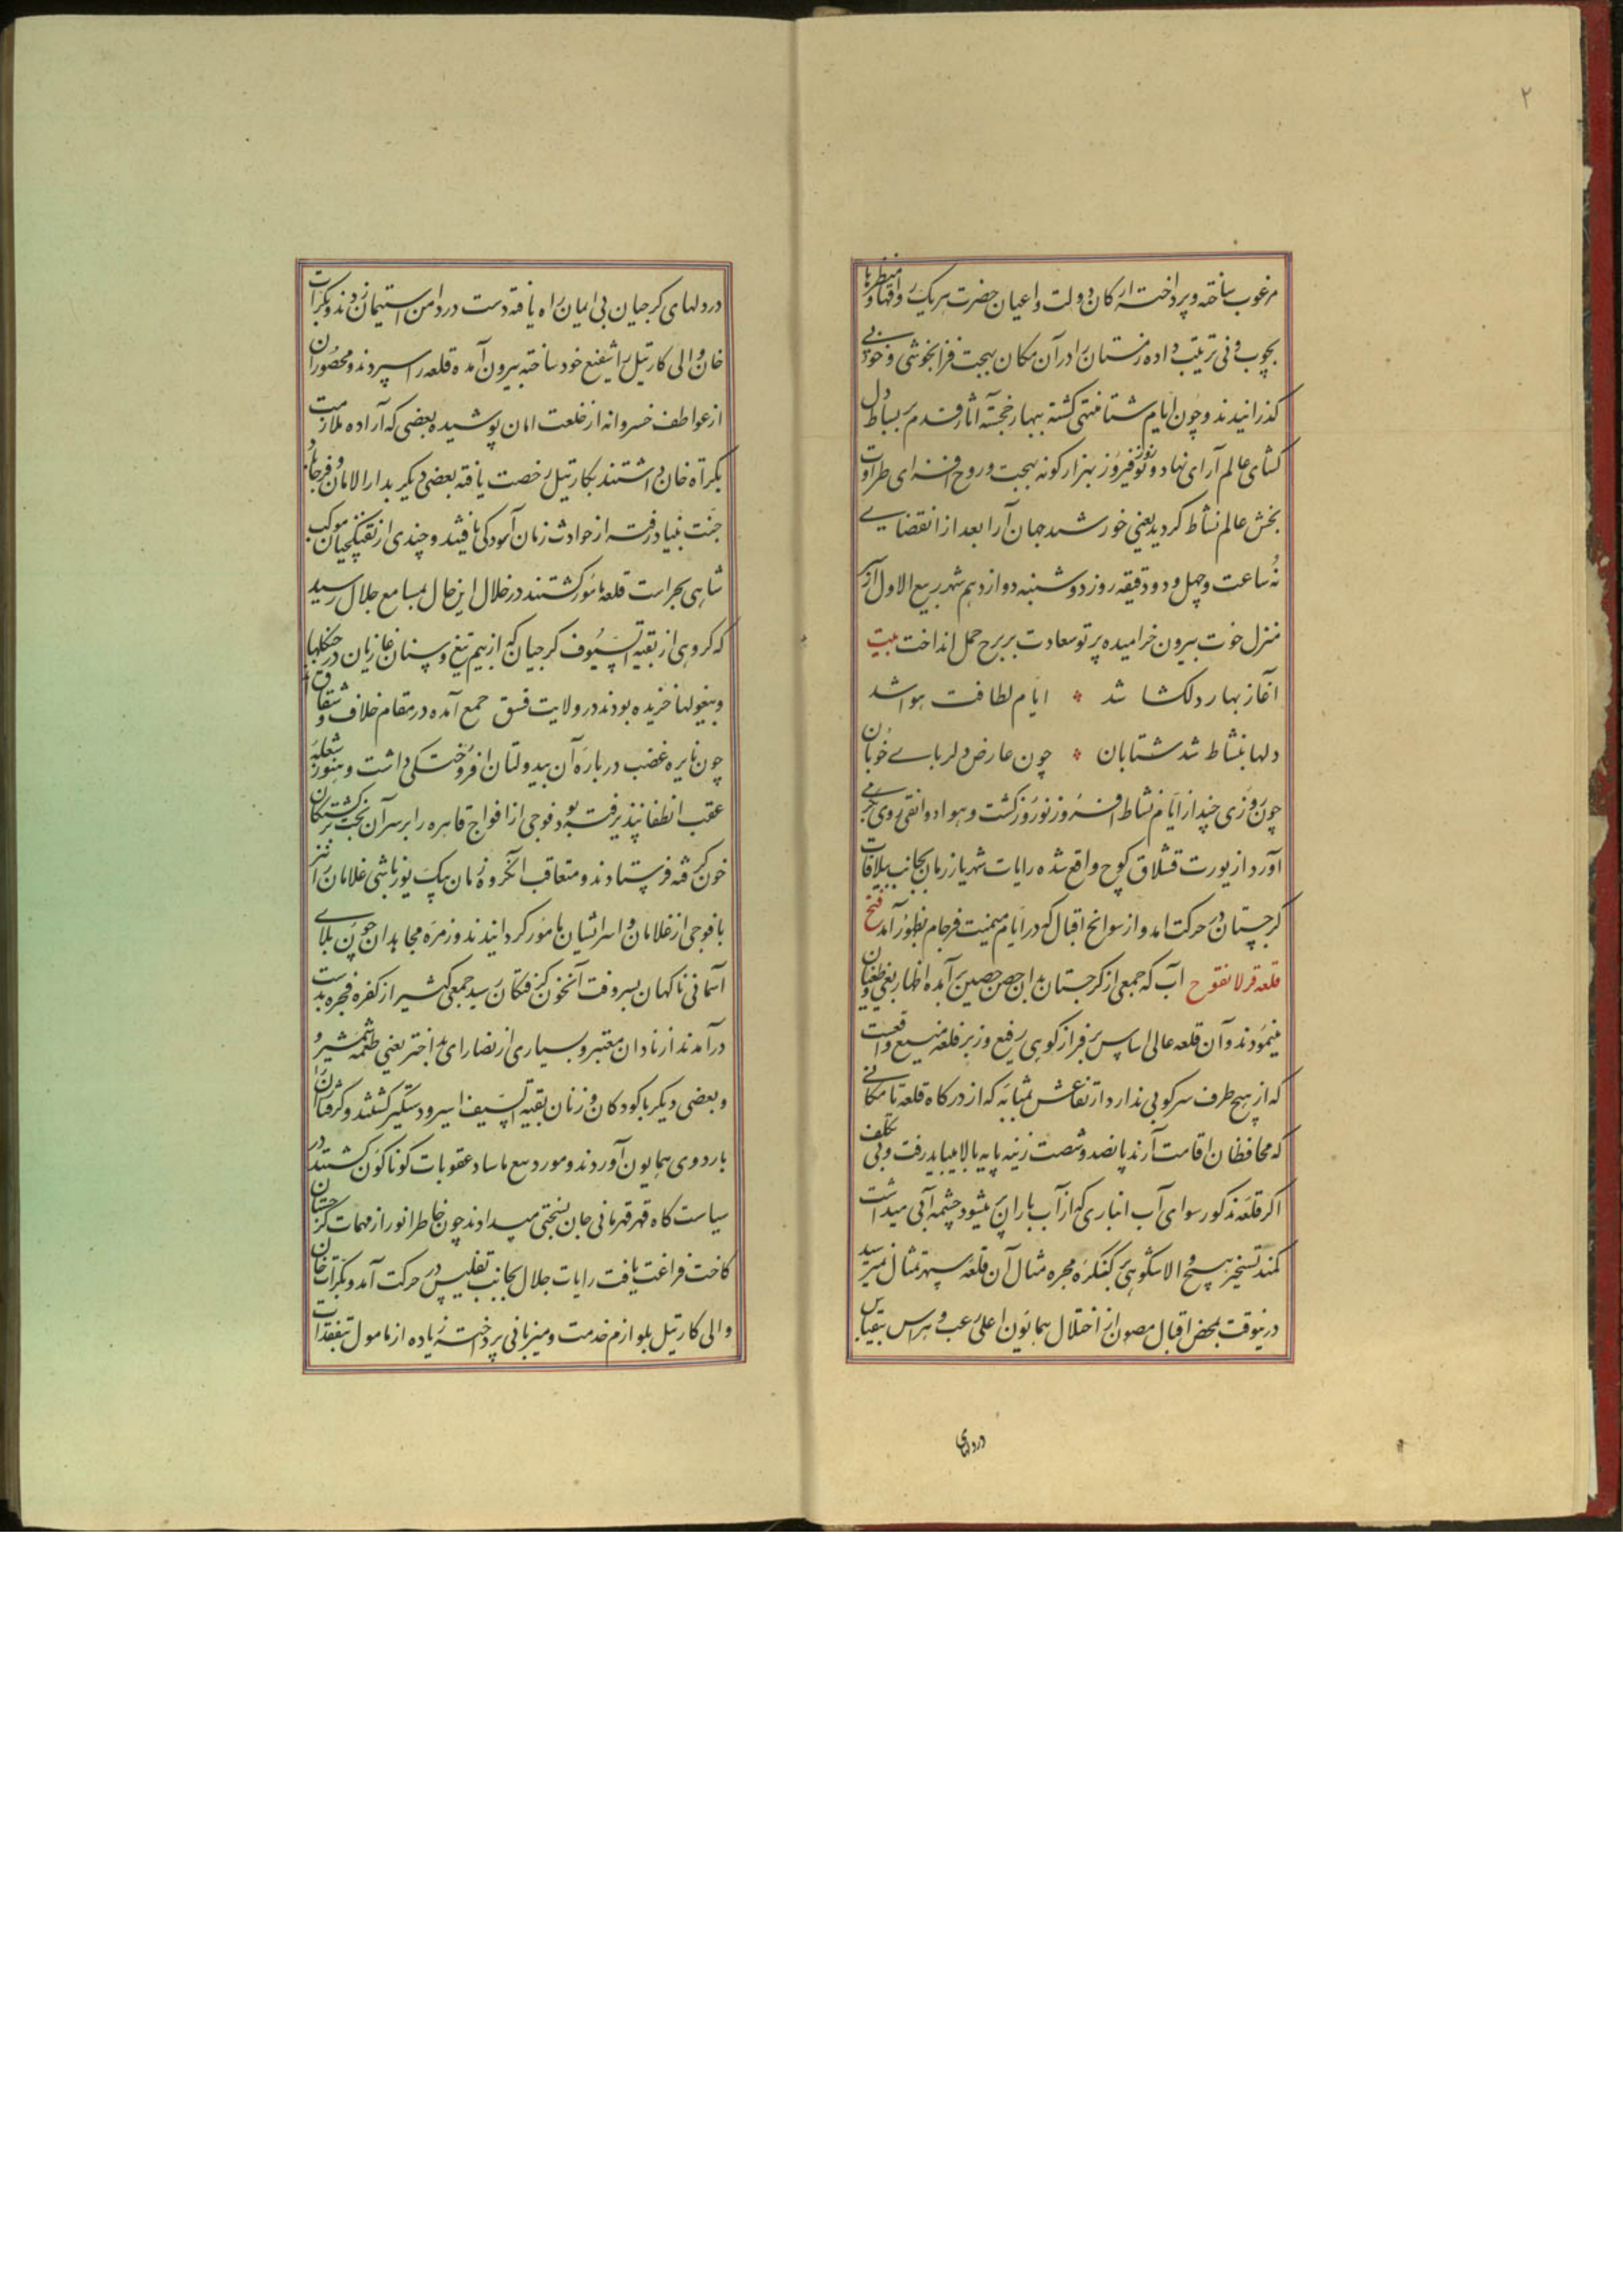 ۲
مرغوب ساخته و پرداخته ارکان دولت و اعیان حضرت هر یک رواقها و منظرها
بچوب و نی ترتیب داده زمستان را در آن مکان بهجت فزا بخوشی و خوبی
کذرانیدند و چون ایام شتا منتهی کشته بهار خجسته آثار قدم بر بساط دل
کشای عالم آرای نهاد و نوروز فیروز بهزار کونه بهجت و روح افزای طراوت
بخش عالم نشاط کردید یعنی خورشید جهان آرا بعد از انقضای
نه ساعت و چهل و دو دقیقه روز دوشنبه دوازدهم شهر ربیع الاول از
منزل حوت بیرون خرامیده پرتو سعادت بر برج حمل انداخت بیت
آغاز بهار دلکشا شد ایام لطافت هوا شد
دلها بنشاط شد شتابان چون عارض دلربای خوبان
چون روزی چند از ایام نشاط افروز نوروز کذشت و هوا روی بکرمی
آورد از یورت قشلاق کوچ واقع شده رایات شهریار زمان بجانب ییلاقات
کرجستان در حرکت امد و از سوانح اقبال که در ایام میمنت فرجام بظهور آمد فتح
قلعه آنست که جمعی از کرجستان بدان حصن حصین آمده اظهار بغی و طغیان
مینمودند و آن قلعه عالی اساس بر فراز کوهی رفیع وزیر قلعه منیع واقعست
که از هیچ طرف سرکوبی ندارد ارتفاعش بمثابه که از درکاه قلعه تا مکانی
که محافظان اقامت آرند پانصد و شصت زینه پایه بالا میباید رفت و بی تکلف
اکر قلعه مذکور سوای آب انباری که از آب باران پر میشود چشمه آبی میداشت
کمند تسخیر هیچ والا شکوهی بر کنکره مجره مثال آن قلعه سپهر تمثال نمیرسید
درینوقت بمحض اقبال مصون از اختلال همایون اعلی رعب و هراس بیقیاس
در دلهای
در دلهای کرجیان بی ایمان راه یافته دست در دامن استیمان زدند و بکرات
خان والی کارتیل را شفیع خود ساخته بیرون آمده قلعه را سپردند و محصوران
از عواطف خسروانه از خلعت امان پوشیده بعضی که اراده ملازمت
بکراه خان داشتند بکارتیل رخصت یافته بعضی دیکر بدار الامان
جنت بنیاد رفته از حوادث زمان آسودکی یافتند و چندی از تفنکچیان موکب
شاهی بحراست قلعه مامور کشتند در خلال این حال بمسامع جلال رسید
که کروهی از بقیة السیوف کرجیان که از بیم تیغ و سنان غازیان در جنکلها
و بیغولها خزیده بودند در ولایت قسق جمع آمده در مقام خلاف و شقاق اند
چون نایره غضب درباره آن بیدولتان افروختکی داشت و هنوز شعله
عقب انطفا نپذیرفته بود فوجی از افواج قاهره را بر سر آن بخت برکشتکان
خون کرفته فرستادند و متعاقب انکروه زمان بیک یوزباشی غلامان را نیز
با فوجی از غلامان و امرا بر سر ایشان مامور کردانیدند و زمره مجاهدان چون بلای
آسمانی ناکهان بسر وقت آنخون کرفتکان رسید جمعی کثیر از کفره فجره بدست
درآمدند ازناوران معتبر و بسیاری از نصارای بداختر یعنی طعمه شمشیر و
و بعضی دیکر با کودکان و زنان بقیة السیف اسیر و دستکیر کشتند و کرفتاران را
باردوی همایون آوردند و مورد عقوبات کوناکون کشتند در
سیاست کاه قهر قهرمانی جان بسختی میدادند چون خاطر انور از مهمات کرجستان
کاخت فراغت یافت رایات جلال بجانب تفلیس در حرکت آمد و بکرات خان
والی کارتیل بلوازم خدمت و میزبانی پرداخته زیاده از مامول بتفقدات